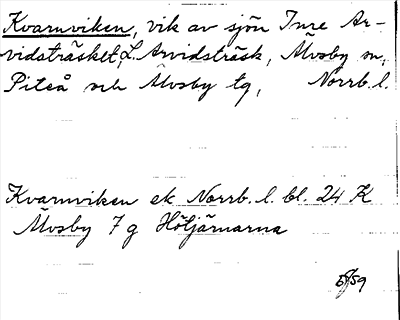 Kvarnviken, vik av sjön Inre Ar-
vidsträsket, L. Arvidsträsk, Älvsby sn,
Piteå och Älvsby tg, Norrb. l.
Kvarnviken ek Norrb. l. bl. 24 K
Älvsby 7 g Höltjärnarna
59